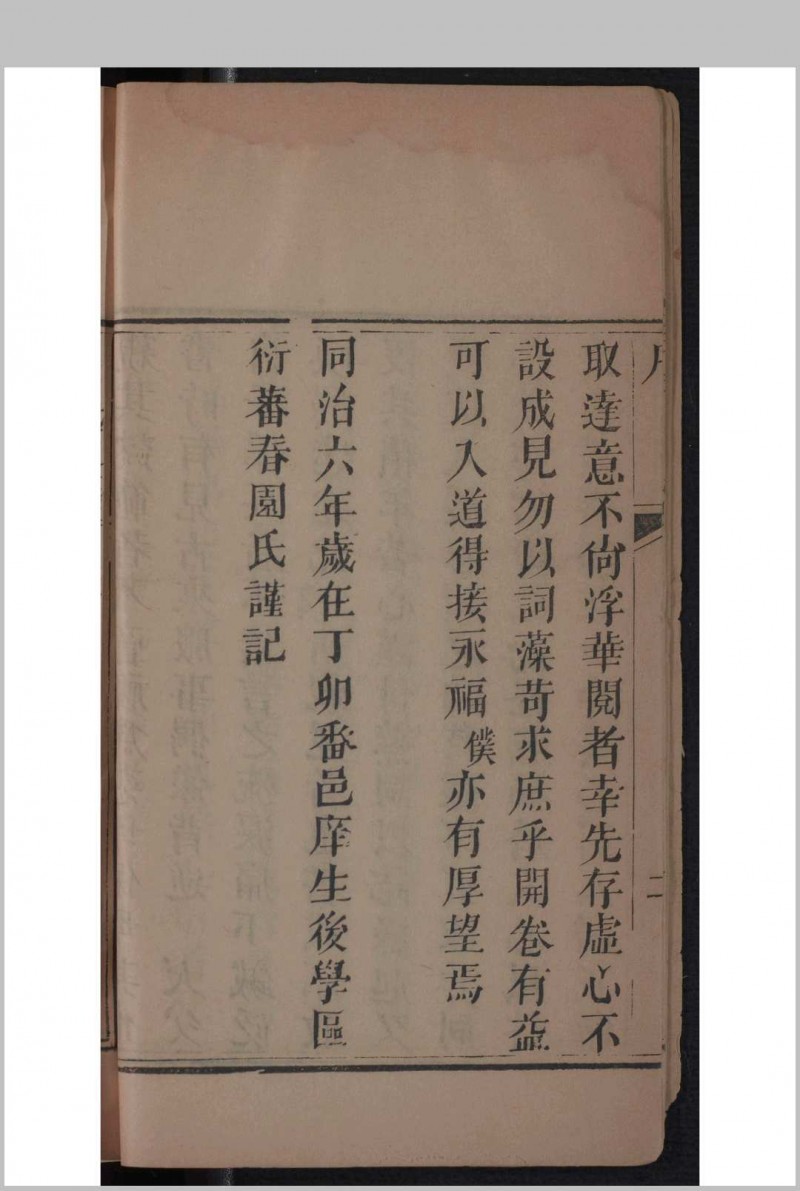 序
二
取達意不尙浮華閱者幸先存虛心不
設成見勿以詞藻苛求庶乎開卷有益
可以入道得接永福僕亦有厚望焉
同治六年歲在丁卯番邑庠生後學區
衍蕃春園氏謹記